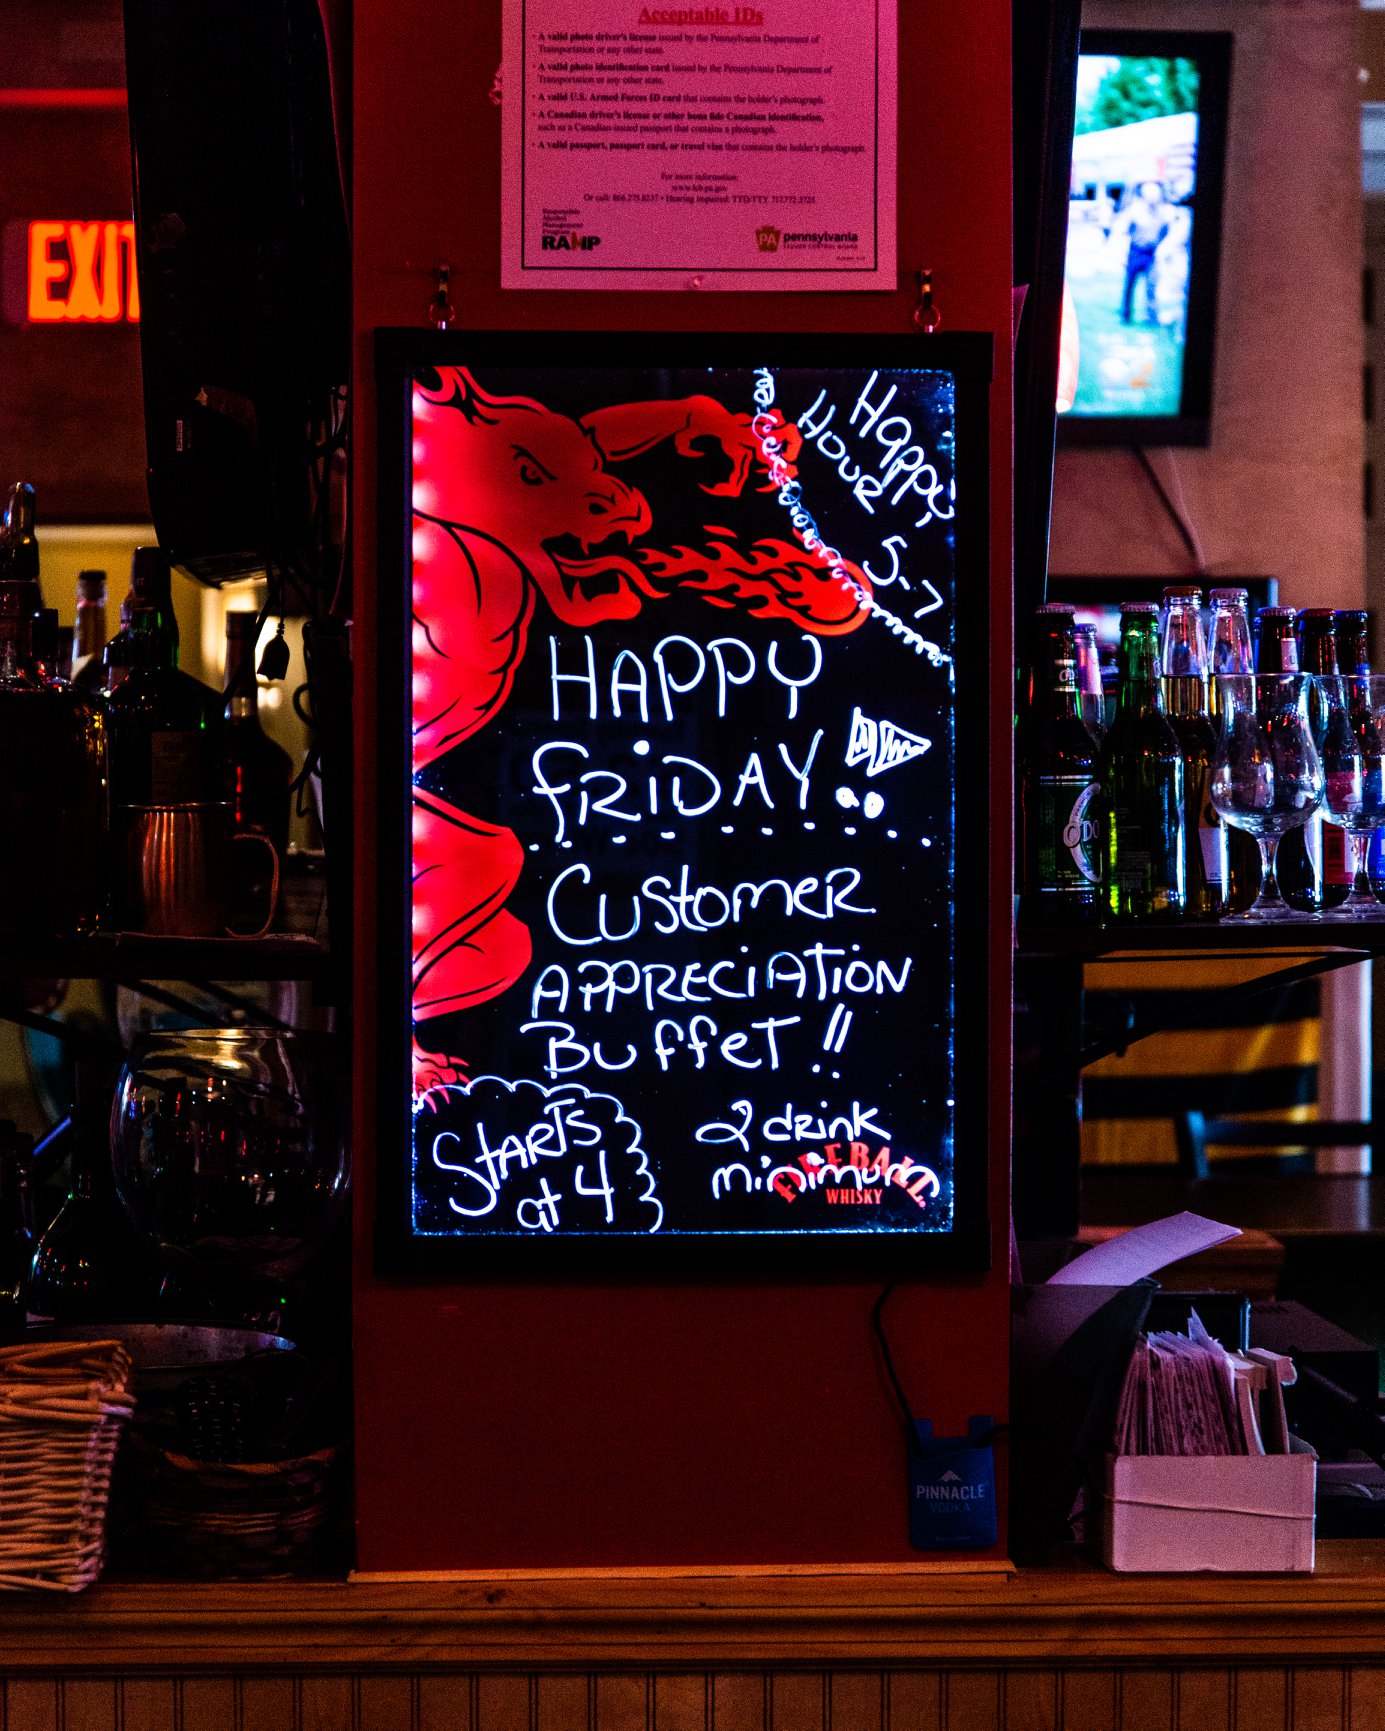 Acceptable IDs
• A valid photo driver's license issued by the Pennsylvania Department of
Transportation or any other state.
• A valid photo identification card issued by the Pennsylvania Department of
Transportation or any other state.
• A valid U.S. Armed Forces ID card that contains the holder's photograph.
• A Canadian driver's license or other bona fide Canadian identification,
such as a Canadian-issued passport that contains a photograph.
• A valid passport, passport card, or travel visa that contains the holder's photograph.
For more information:
www.lcb.pa.gov
Or call: 866.275.8237 • Hearing Impaired: TTD/TTY 717.772.3725
Responsible
Alcohol
Management
Program
RAMP
PA pennsylvania
LIQUOR CONTROL BOARD
EXIT
Happy
HOUR
5-7
HAPPY
FRiDAY..
Customer
APPRECiATiON
BuffeT !!
STARTS
at 4
2 drink
minimum
FIREBALL
WHISKY
PINNACLE
VODKA